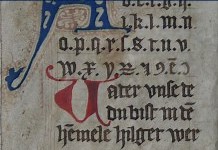 A b c d e f g h
i k l m n
o. p. q. r. ſ. t. u. v.
w. x. y. z.
Vater vnſe de
du biſt in de
hemele hilget wer